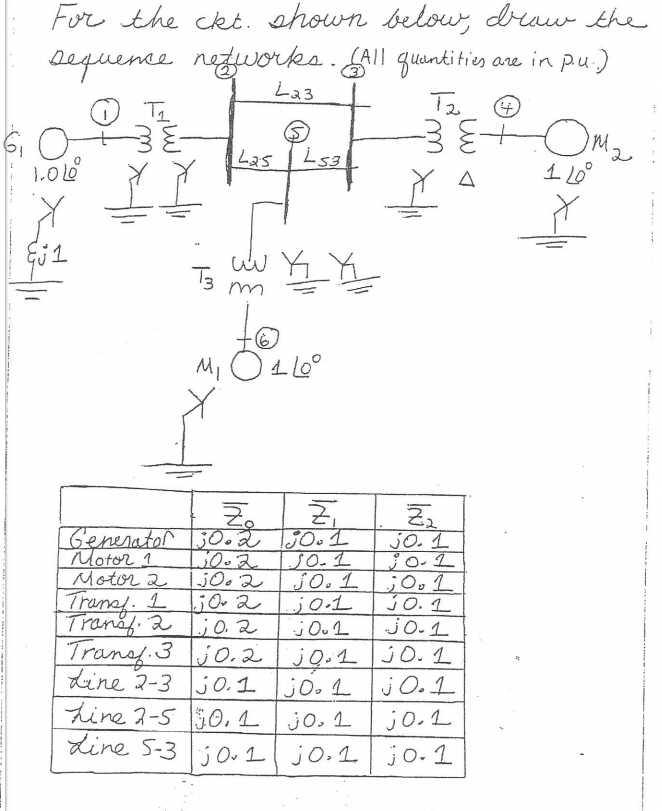 For the ckt. shown below, draw the
sequence networks. (All quantities are in p.u.)
② ③
L23
① T1 T2 ④
G1 ⑤ M2
L25 L53
1.0∠0° Δ 1∠0°
j1
T3
⑥
M1 1∠0°
Z̅0 Z̅1 Z̅2
Generator j0.2 j0.1 j0.1
Motor 1 j0.2 j0.1 j0.1
Motor 2 j0.2 j0.1 j0.1
Transf. 1 j0.2 j0.1 j0.1
Transf. 2 j0.2 j0.1 j0.1
Transf. 3 j0.2 j0.1 j0.1
Line 2-3 j0.1 j0.1 j0.1
Line 2-5 j0.1 j0.1 j0.1
Line 5-3 j0.1 j0.1 j0.1